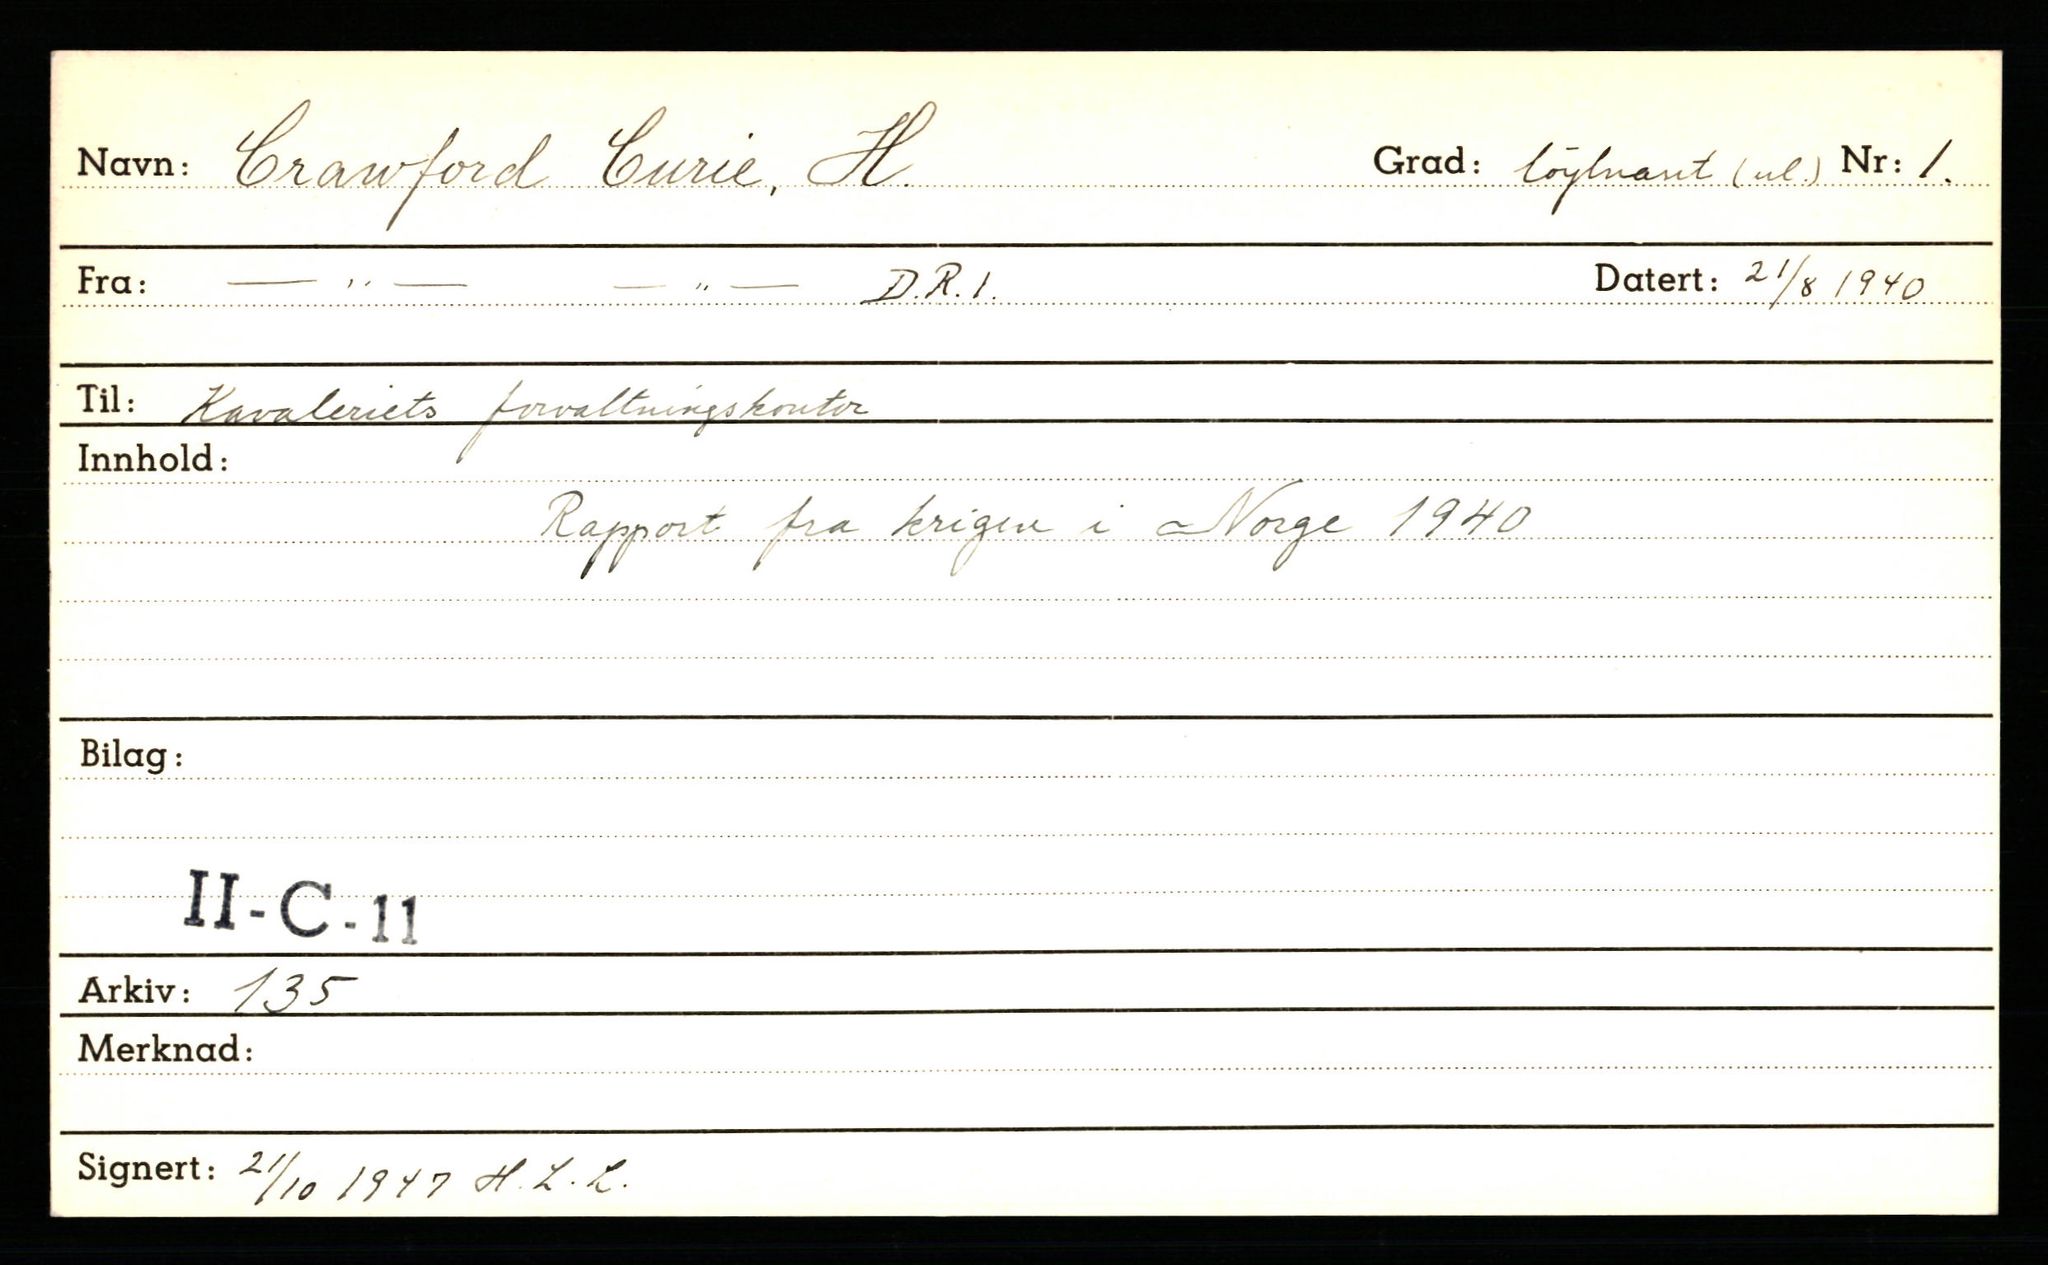 Navn: Crawford Curie, H. Grad: löytnant (vl.) Nr: 1.
Fra: — " — — " — D.R.1. Datert: 21/8 1940
Til: Kavaleriets forvaltningskontor
Innhold:
Rapport fra krigen i Norge 1940
Bilag:
II-C-11
Arkiv: 135
Merknad:
Signert: 21/10 1947 H.L.L.